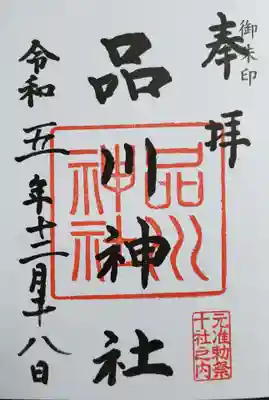 御朱印
奉拝
品川神社
品川神社
元准勅祭
十社之内
令和五年十二月十八日